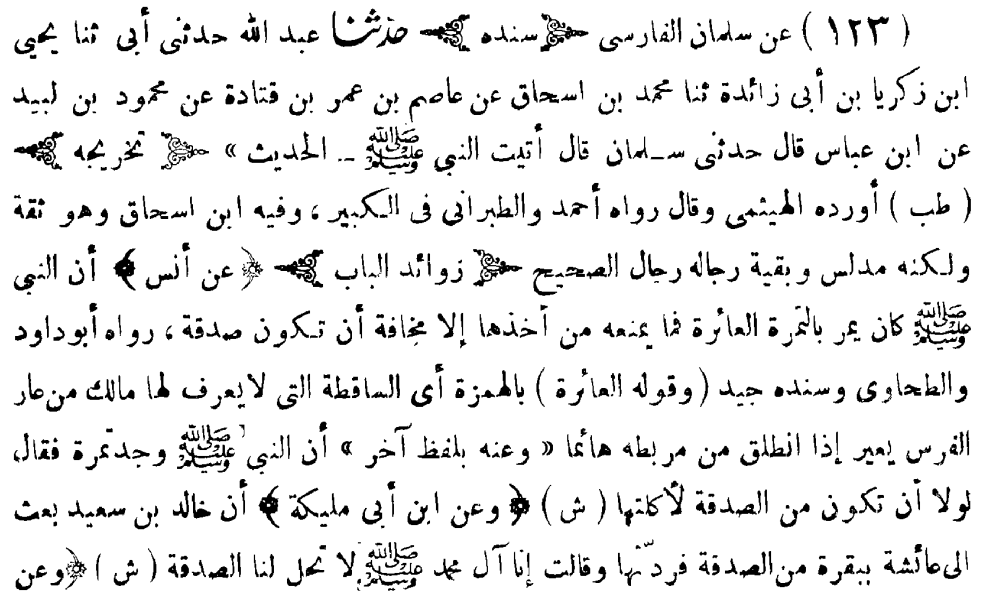 ( ١٢٣ ) عن سلمان الفارسى ﴿ سنده ﴾ حدّثنا عبد الله حدثنى أبى ثنا يحيى
ابن زكريا بن أبى زائدة ثنا محمد بن اسحاق عن عاصم بن عمر بن قتادة عن محمود بن لبيد
عن ابن عباس قال حدثنى سلمان قال أتيت النبي ﷺ ـ الحديث » ﴿ تخريجه ﴾
( طب ) أورده الهيثمى وقال رواه أحمد والطبرانى فى الكبير ، وفيه ابن اسحاق وهو ثقة
ولكنه مدلس وبقية رجاله رجال الصحيح ﴿ زوائد الباب ﴾ ﴿ عن أنس ﴾ أن النبي
ﷺ كان يمر بالتمرة العائرة فما يمنعه من أخذها إلا مخافة أن تكون صدقة ، رواه أبوداود
والطحاوى وسنده جيد ( وقوله العائرة ) بالهمزة أى الساقطة التى لايعرف لها مالك من عار
الفرس يعير إذا انطلق من مربطه هائما « وعنه بلفظ آخر » أن النبي ﷺ وجد تمرة فقال
لولا أن تكون من الصدقة لأكلتها ( ش ) ﴿ وعن ابن أبى مليكة ﴾ أن خالد بن سعيد بعث
الى عائشة ببقرة من الصدقة فردّتها وقالت إنا آل محمد ﷺ لا تحل لنا الصدقة ( ش ) ﴿ وعن